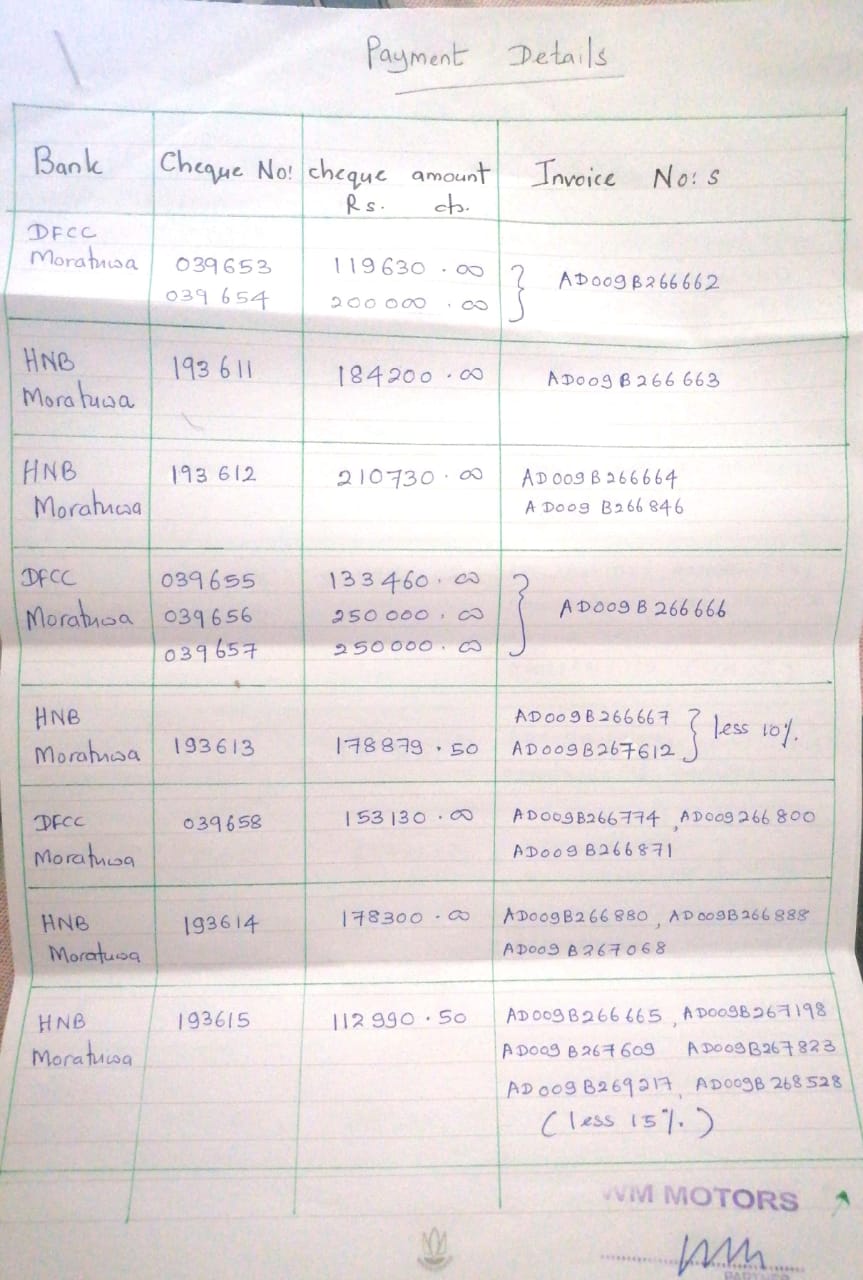 Payment Details
Bank Cheque No: cheque amount Invoice No: s
Rs. cts.
DFCC
Moratuwa 039653 119630.00 } AD009B266662
039654 200000.00
HNB 193611 184200.00 AD009B266663
Moratuwa
HNB 193612 210730.00 AD009B266664
Moratuwa AD009B266846
DFCC 039655 133460.00
Moratuwa 039656 250000.00 } AD009B266666
039657 250000.00
HNB AD009B266667 } less 10%.
Moratuwa 193613 178879.50 AD009B267612
DFCC 039658 153130.00 AD009B266774, AD009266800
Moratuwa AD009B266871
HNB 193614 178300.00 AD009B266880, AD009B266888
Moratuwa AD009B267068
HNB 193615 112990.50 AD009B266665, AD009B267198
Moratuwa AD009B267609 AD009B267823
AD009B269217, AD009B268528
(less 15%.)
WM MOTORS
PARTNER